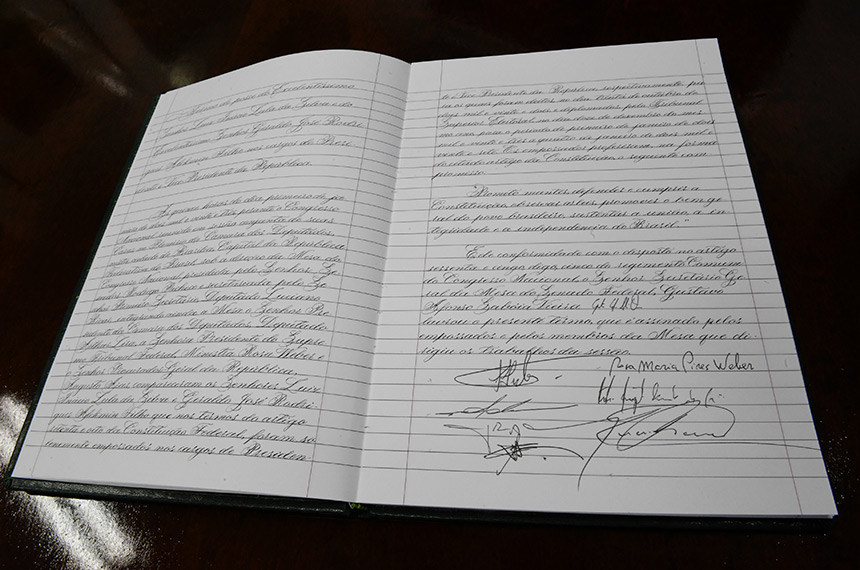 Termo de posse do Excelentíssimo
Senhor Luiz Inácio Lula da Silva e do
Excelentíssimo Senhor Geraldo José Rodri-
gues Alckmin Filho nos cargos de Presi-
dente e Vice-Presidente da República.
Às quinze horas do dia primeiro de ja-
neiro de dois mil e vinte e três, presente o Congresso
Nacional reunido em sessão conjunta de suas
Casas no Plenário da Câmara dos Deputados,
nesta cidade de Brasília, Capital da República
Federativa do Brasil, sob a direção da Mesa do
Congresso Nacional presidida pelo Senhor Se-
nador Rodrigo Pacheco e secretariada pelo Se-
nhor Primeiro Secretário Deputado Luciano
Bivar, integrando ainda a Mesa o Senhor Pre-
sidente da Câmara dos Deputados, Deputado
Arthur Lira, a Senhora Presidente do Supre-
mo Tribunal Federal, Ministra Rosa Weber e
o Senhor Procurador-Geral da República,
Augusto Aras, compareceram os Senhores Luiz
Inácio Lula da Silva e Geraldo José Rodri-
gues Alckmin Filho que, nos termos do artigo
setenta e oito da Constituição Federal, foram so-
lenemente empossados nos cargos de Presiden-
te e Vice-Presidente da República, respectivamente, pa-
ra os quais foram eleitos em dia trinta de outubro de
dois mil e vinte e dois e diplomados pelo Tribunal
Superior Eleitoral em dia doze de dezembro do mes-
mo ano para o período de primeiro de janeiro de dois
mil e vinte e três a quatro de janeiro de dois mil e
vinte e sete. Os empossados proferiram, na forma
do citado artigo da Constituição, o seguinte com-
promisso:
"Prometo manter, defender e cumprir a
Constituição, observar as leis, promover o bem ge-
ral do povo brasileiro, sustentar a união, a in-
tegridade e a independência do Brasil."
E de conformidade com o disposto no artigo
sessenta e cinco, digo, do Regimento Comum
do Congresso Nacional, o Senhor Secretário-Ge-
ral da Mesa do Senado Federal, Gustavo
Afonso Sabóia Vieira
lavrou o presente termo, que é assinado pelos
empossados e pelos membros da Mesa que di-
rigiu os trabalhos da sessão.
Rosa Maria Pires Weber